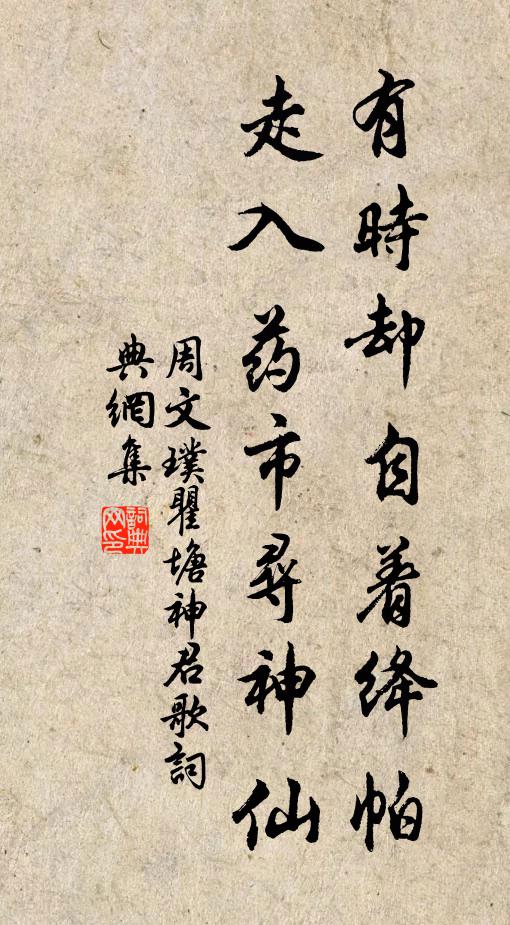 有時却自着绛帕
走入药市尋神仙
周文璞瞿塘神君歌詞
典網集
詞典網印